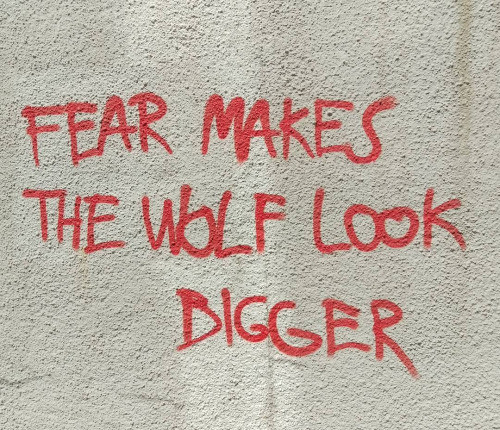 FEAR MAKES
THE WOLF LOOK
DIGGER